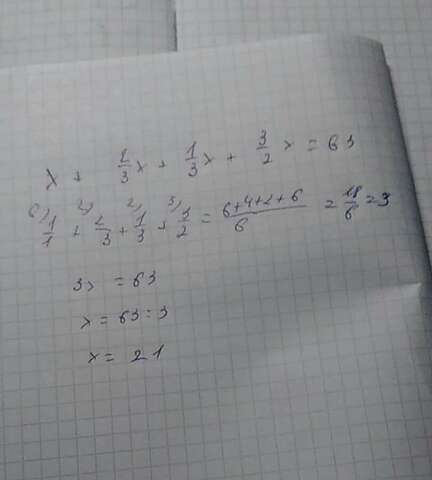 x + 2/3 x + 1/3 x + 3/2 x = 63
6) 1/1 + 2) 2/3 + 2) 1/3 + 3) 3/2 = 6+4+2+6/6 = 18/6 = 3
3x = 63
x = 63 : 3
x = 21